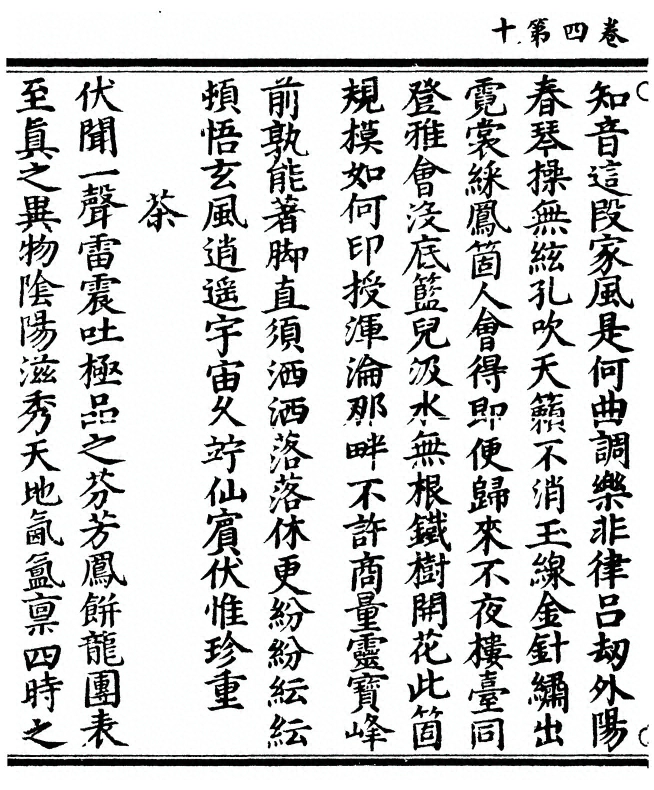 卷四第十
知音這段家風是何曲調樂非律呂刼外陽
春琴操無絃孔吹天籟不消玉線金針繡出
霓裳綵鳳箇人會得即便歸來不夜樓臺同
登雅會没底籃兒汲水無根鐵樹開花此箇
規模如何印授渾淪那畔不許商量靈寶峰
前孰能著脚直須洒洒落落休更紛紛紜紜
頓悟玄風逍遥宇宙久竚仙賓伏惟珍重
茶
伏聞一聲雷震吐極品之芬芳鳳餅龍團表
至眞之異物陰陽滋秀天地氤氳禀四時之